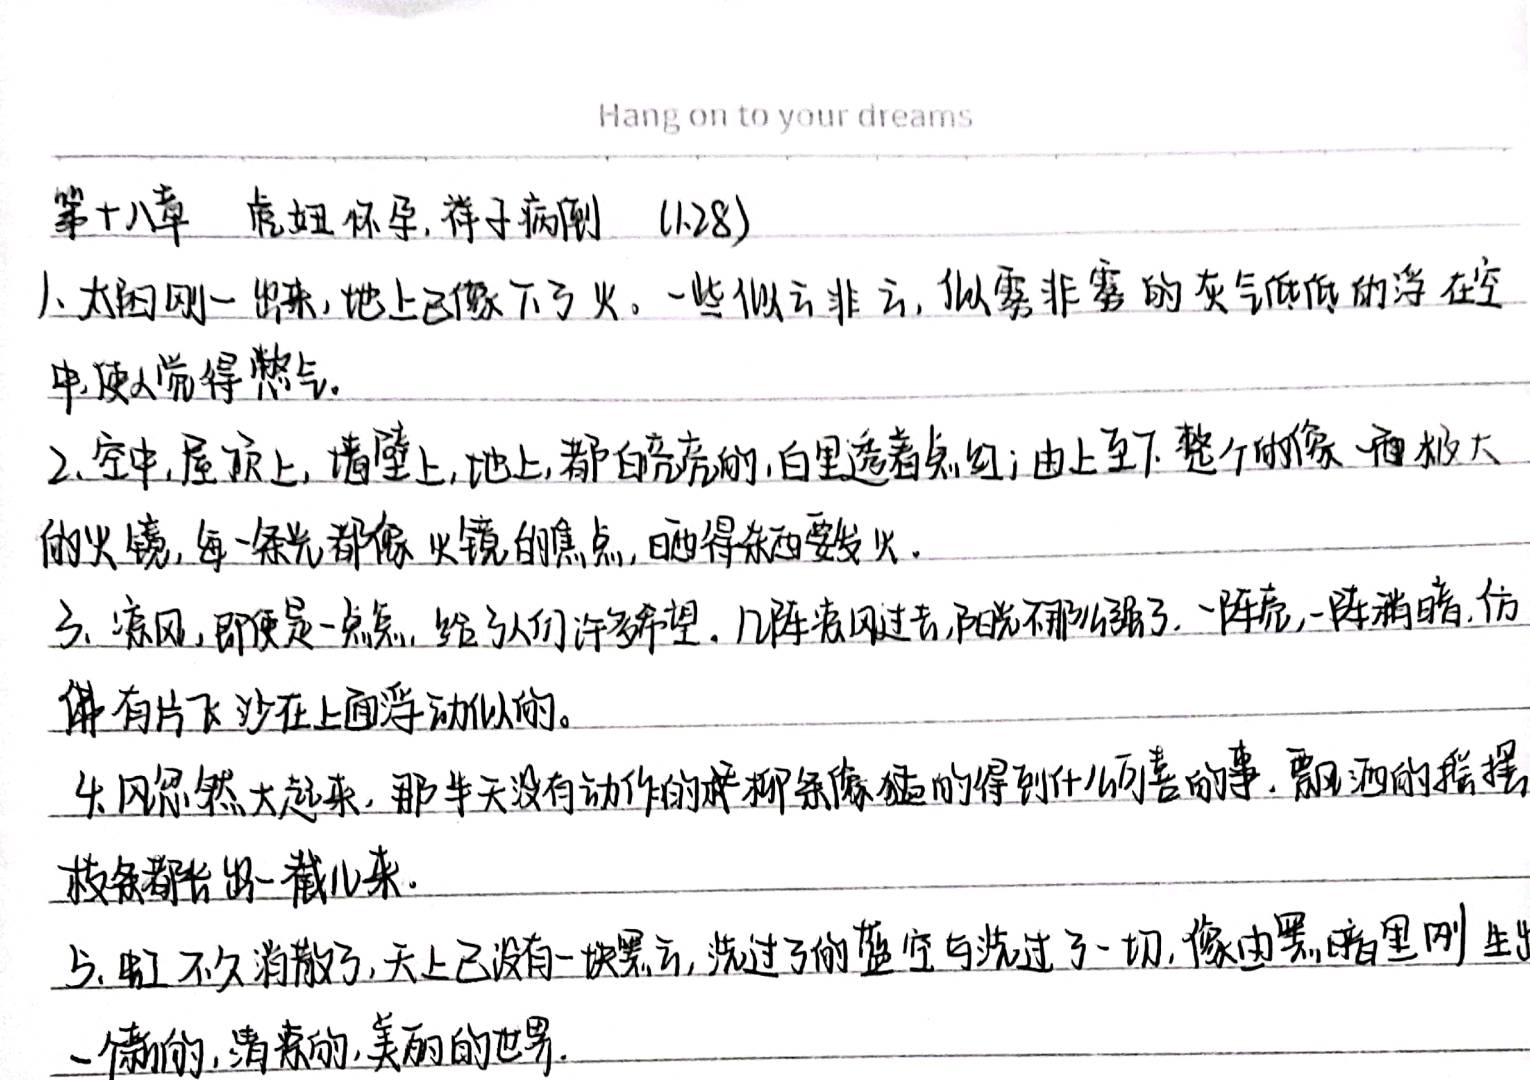 Hang on to your dreams
第十八章 虎妞怀孕,祥子病倒 (1.28)
1、太阳刚一出来,地上已像下了火。一些似云非云,似雾非雾的灰气低低的浮在空
中,使人觉得憋气.
2、空中,屋顶上,墙壁上,地上,都白亮亮的,白里透着点红;由上至下整个的像一面极大
的火镜,每一条光都像火镜的焦点,晒得东西要发火.
3、凉风,即便是一点点,给了人们许多希望.几阵凉风过去,阳光不那么强了.一阵亮,一阵稍暗.仿
佛有片飞沙在上面浮动似的。
4.风忽然大起来,那半天没有动作的柳条像猛的得到什么可喜的事.飘洒的摇摆
枝条都长出一截儿来.
5、虹不久消散了,天上已没有一块黑云,洗过了的蓝空与洗过了一切,像由黑暗里刚生出
一个新的,清凉的,美丽的世界.